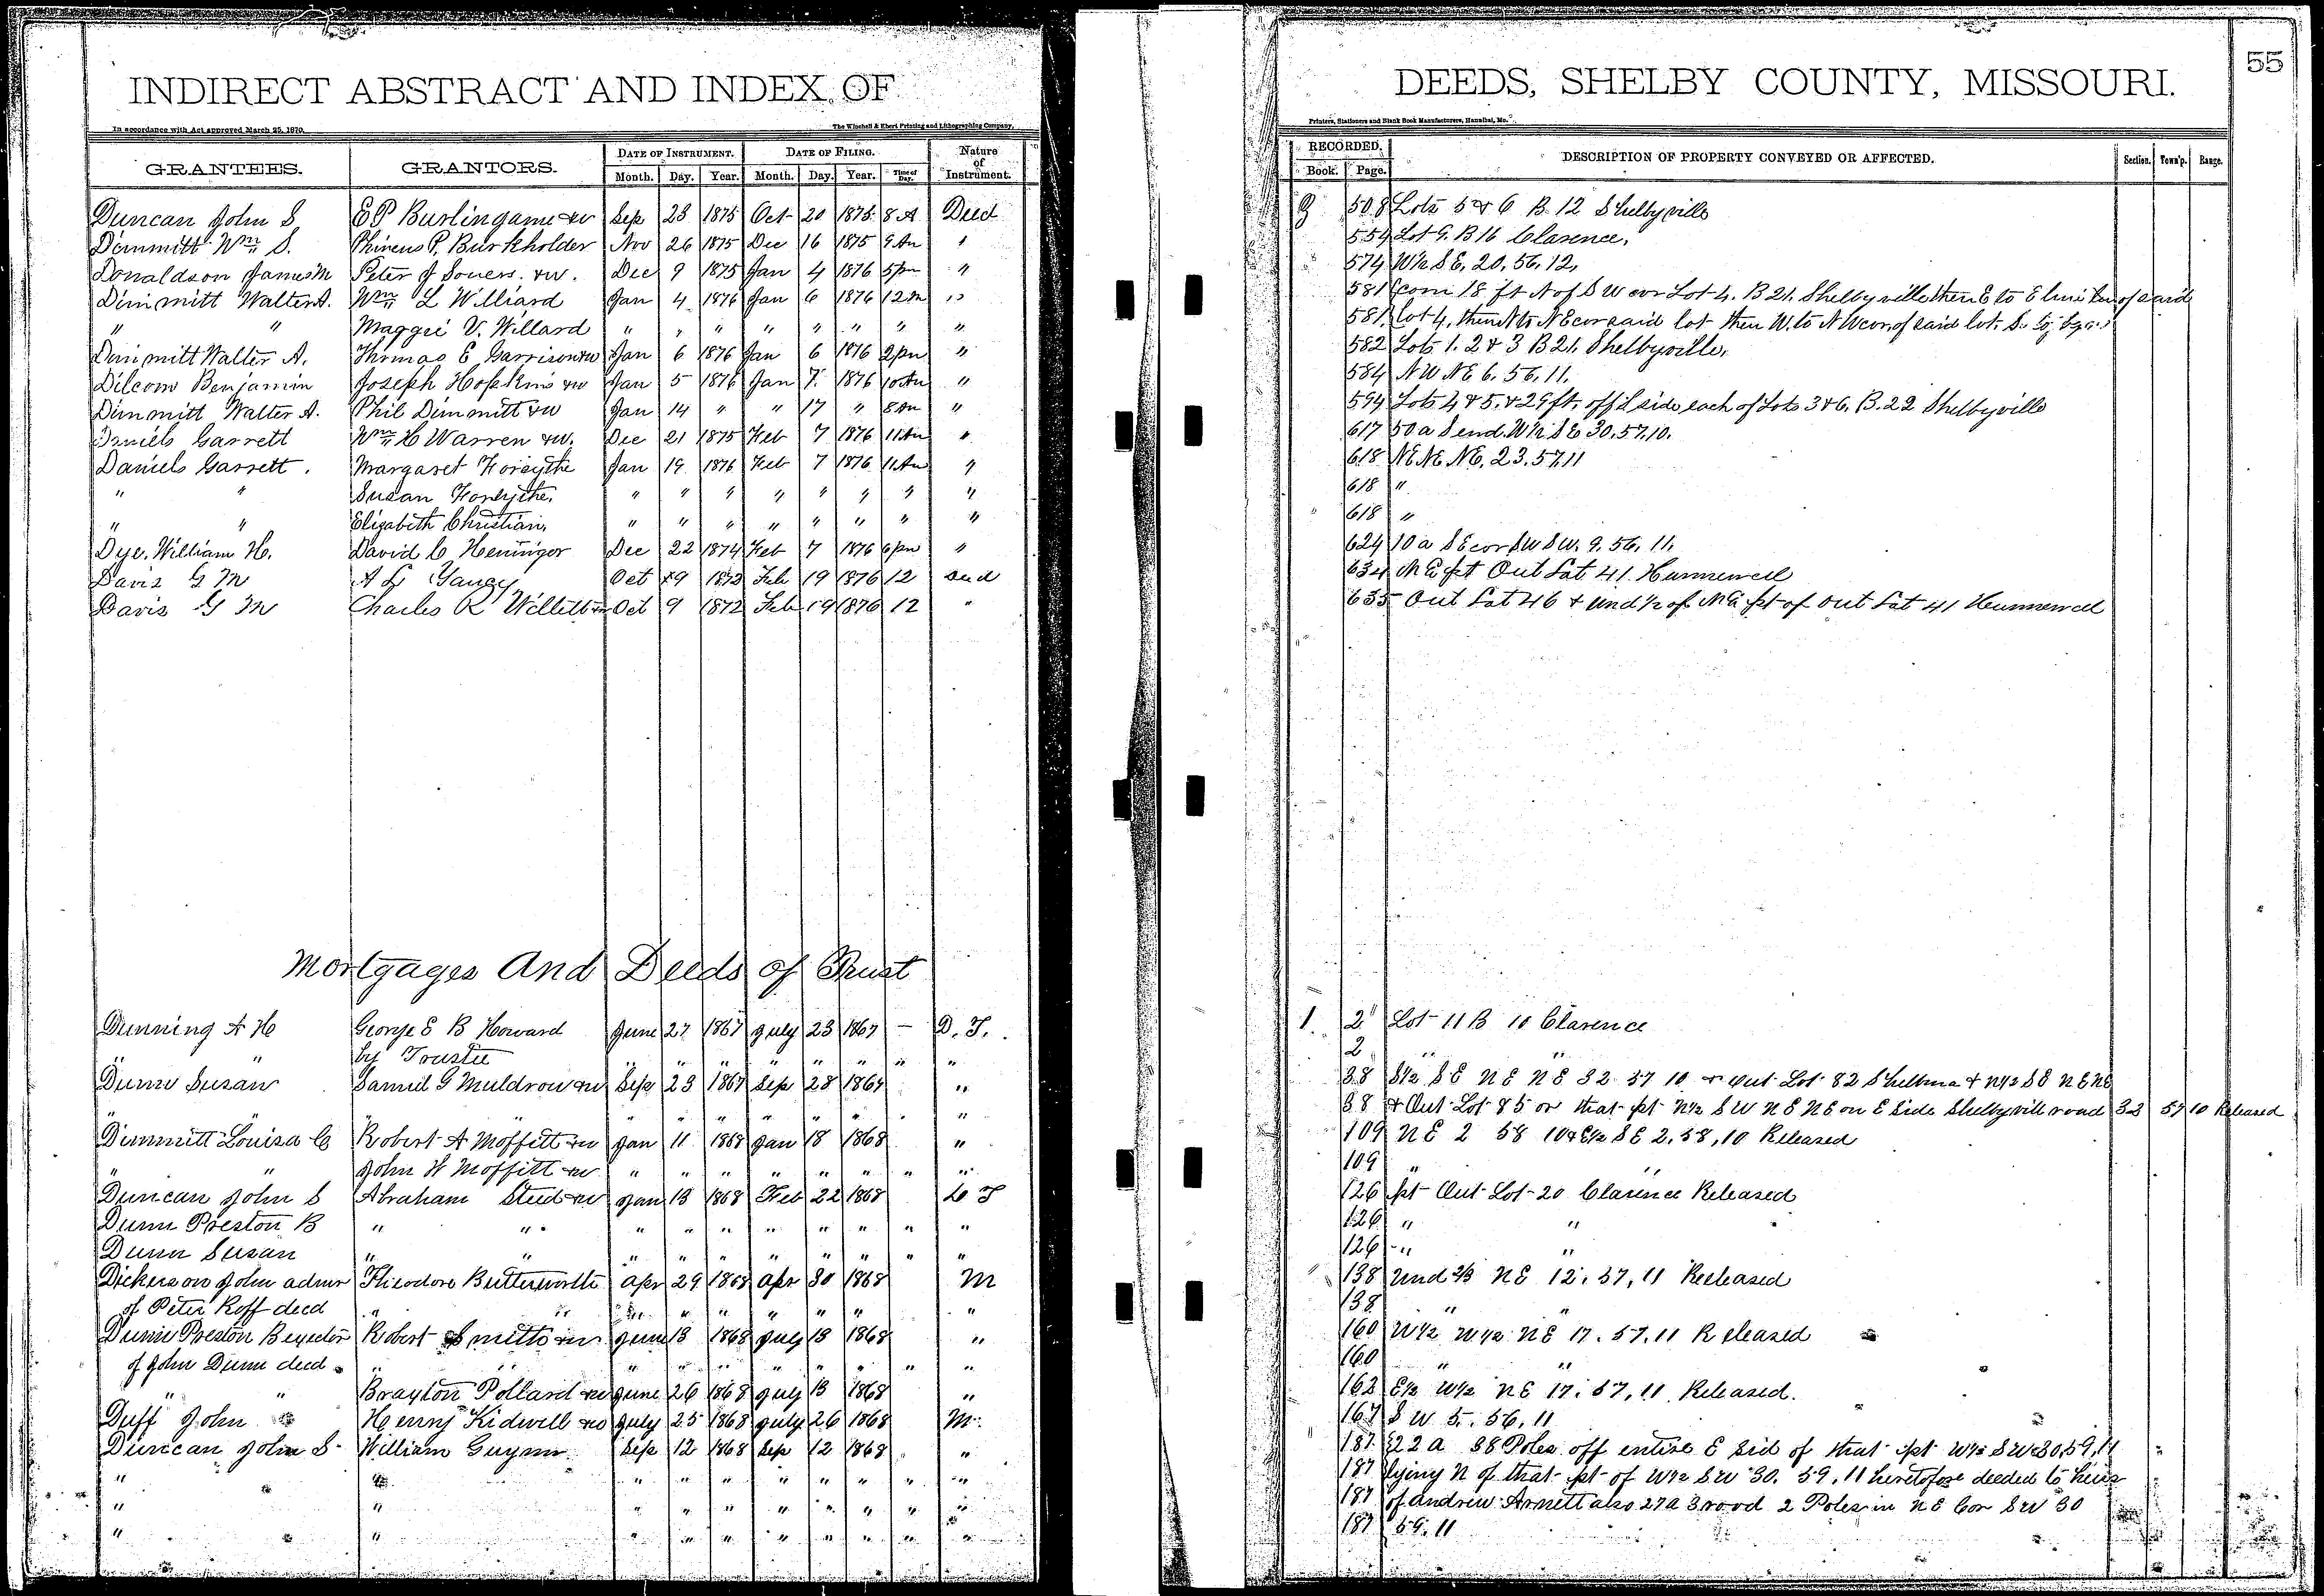 INDIRECT ABSTRACT AND INDEX OF
In accordance with Act approved March 25, 1870.
The Winchell & Ebert Printing and Lithographing Company,
GRANTEES. GRANTORS. DATE OF INSTRUMENT. DATE OF FILING. Nature of Instrument.
Month. Day. Year. Month. Day. Year. Time of Day.
Duncan John S E P Burlingame & w Sep 23 1875 Oct 20 1875 8 A Deed
Dimmitt Wm S. Phineus P. Burkholder Nov 26 1875 Dec 16 1875 9 Am "
Donaldson James M Peter J Souers. & w. Dec 9 1875 Jan 4 1876 5 pm "
Dimmitt Walter A. Wm L Williard Jan 4 1876 Jan 6 1876 12 m "
" " Maggie V. Willard " " " " " " " "
Dimmitt Walter A. Thomas E Garrison & w Jan 6 1876 Jan 6 1876 2 pm "
Dilcom Benjamin Joseph Hopkins & w Jan 5 1876 Jan 7. 1876 10 Am "
Dimmitt Walter A. Phil Dimmitt & w Jan 14 " " 17 " 8 Am "
Daniels Garrett Wm H Warren & w. Dec 21 1875 Feb 7 1876 11 Am "
Daniels Garrett. Margaret Forsythe Jan 19 1876 Feb 7 1876 11 Am "
" " Susan Forsythe. " " " " " " " "
" " Elizabeth Christian, " " " " " " " "
Dye. William H. David C Heninger Dec 22 1874 Feb 7 1876 6 pm "
Davis G M A L Yancy Oct 9 1872 Feb 19 1876 12 Deed
Davis G M Charles R Willett & w Oct 9 1872 Feb 19 1876 12 "
Mortgages And Deeds of Trust
Dunning A H George E B Howard June 27 1867 July 23 1867 — D. T.
" " by Trustee " " " " " " " "
Dunn Susan Samuel G Muldrow & w Sep 23 1867 Sep 28 1867 "
" " " " " " " " " "
Dimmitt Louisa C Robert A Moffett & w Jan 11 1868 Jan 18 1868 "
" " John W Moffitt & w " " " " " " " "
Duncan John S Abraham Steed & w Jan 13 1868 Feb 22 1868 D T
Dunn Preston B " " " " " " " " " "
Dunn Susan " " " " " " " " " "
Dickerson John admr Theodore Butterworth Apr 29 1868 Apr 30 1868 M
of Peter Roff decd " " " " " " " " "
Dunn Preston B exector Robert Smith & w June 13 1868 July 13 1868 "
of John Dunn decd " " " " " " " " " "
" " Brayton Pollard & w June 26 1868 July 13 1868 "
Duff John Henry Kidwell & w July 25 1868 July 26 1868 M
Duncan John S. William Guynn Sep 12 1868 Sep 12 1868 "
" " " " " " " " " "
" " " " " " " " " "
" " " " " " " " " "
55
DEEDS, SHELBY COUNTY, MISSOURI.
Printers, Stationers and Blank Book Manufacturers, Hannibal, Mo.
RECORDED. DESCRIPTION OF PROPERTY CONVEYED OR AFFECTED. Section. Town'p. Range.
Book. Page.
508 Lots 5 & 6 B. 12 Shelbyville
554 Lot 9. B 16 Clarence.
574 W½ S E, 20, 56, 12,
581 Com 18 ft N of S W cor Lot 4. B 21. Shelbyville then E to E line of said
581 Lot 4, then N to N E cor said lot then W. to N W cor of said lot. S. to beg.
582 Lots 1. 2 & 3 B 21. Shelbyville.
584 N W N E 6. 56. 11.
594 Lots 4 & 5. & 29 ft. off S side each of Lots 3 & 6. B. 22 Shelbyville
617 50 a S end. W½ S E 30. 57. 10.
618 N E N E. N E. 23. 57. 11
618 "
618 "
624 10 a S E cor S W S W. 9. 56. 11.
634 N E pt Out Lot 41. Hunnewell
635 Out Lot 46 & und ½ of N E pt of out Lot 41 Hunnewell
1. 2 Lot 11 B 10 Clarence
2 " "
38 S½ S E N E N E 32 57 10 & Out Lot 82 Shelbina & N½ S E N E N E
38 & Out Lot 85 or that pt N½ S W N E N E on E side Shelbyville road 32 57 10 Released
109 N E 2 58 10 & E½ S E 2. 58, 10 Released
109 " "
126 pt Out Lot 20 Clarence Released
126 " "
126 " "
138 Und 2/3 N E 12, 57, 11 Released
138 " "
160 W½ W½ N E 17. 57, 11 Released
160 " "
162 E½ W½ N E 17. 57, 11. Released.
167 S W 5. 56, 11
187 22 a 38 Poles off entire E Sid of that pt W½ S W 30, 59, 11
187 lying N of that pt of W½ S W 30. 59, 11 heretofore deeded to heirs
187 of Andrew Arnett also 27 a 3 rood 2 Poles in N E Cor S W 30
187 59, 11